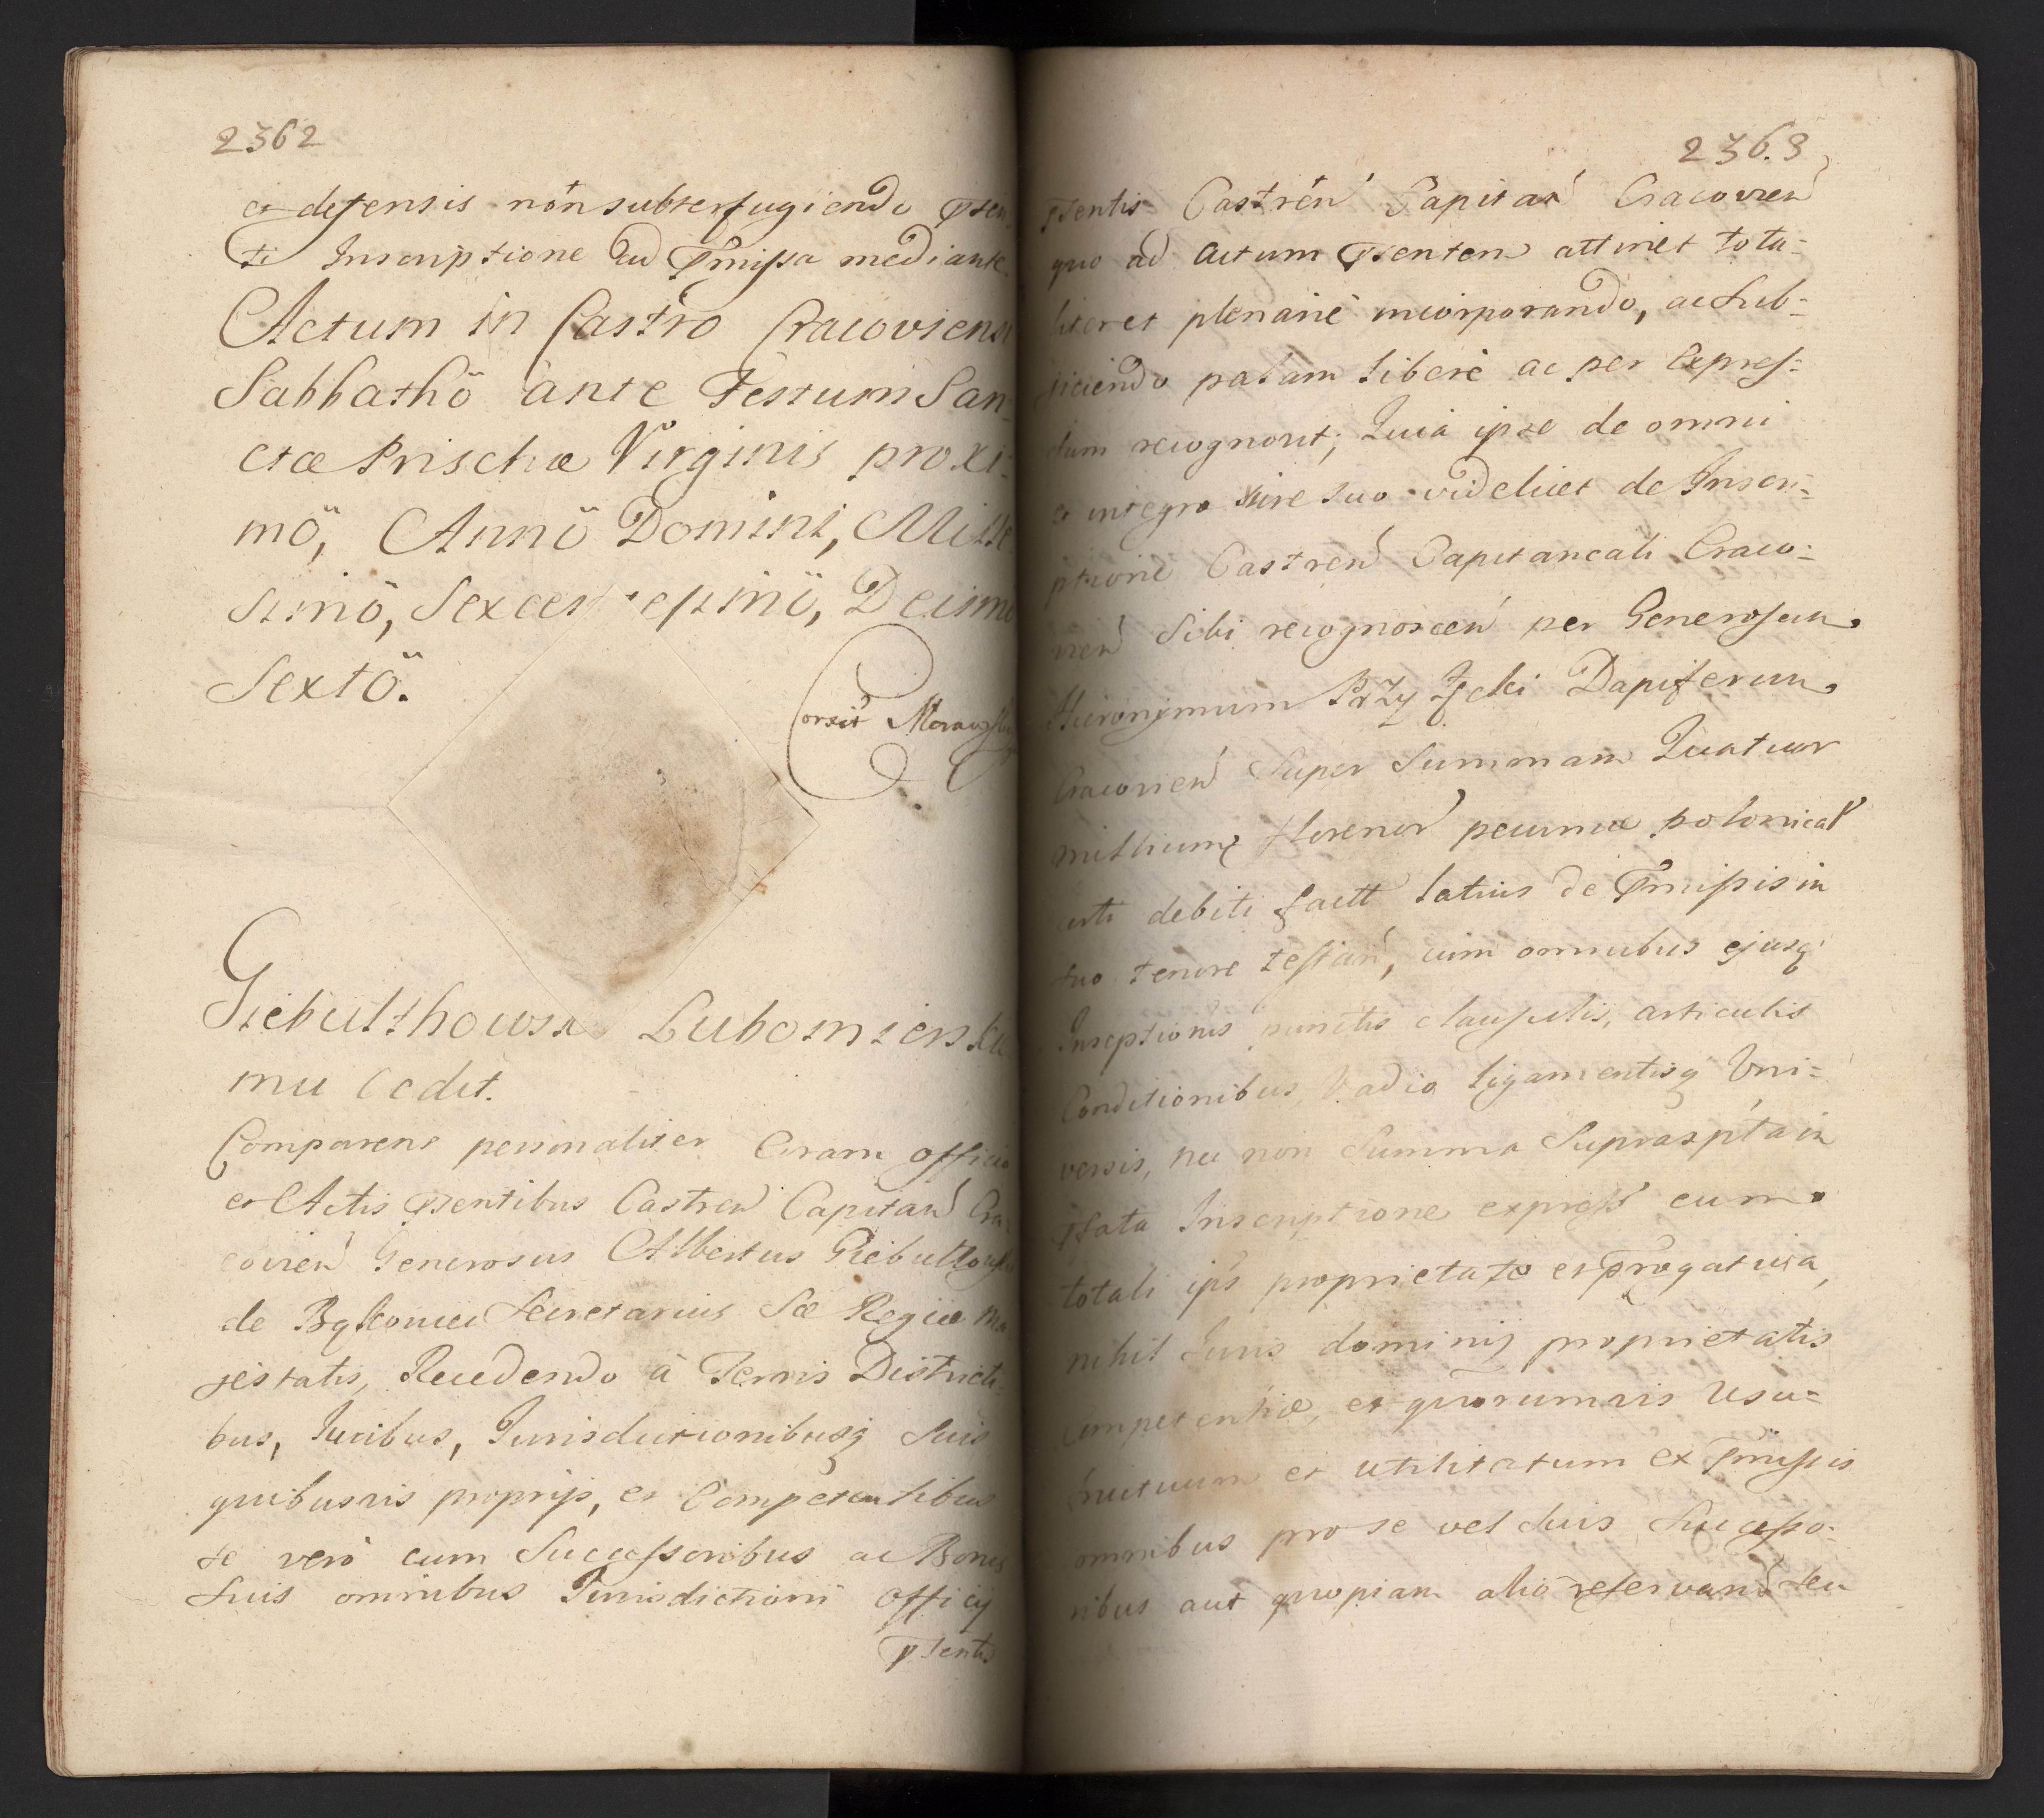 2362
et defensis non subterfugiendo psen
ti Inscriptione ad pmissa mediante.
Actum in Castro Cracoviensi
Sabbathö ante Festum San=
ctæ Prischæ Virginis proxi=
mö, Annö Domini, Mille
simö, Sexcen esimö, Decimo
Sextö.
Corxit
Giebulthowski Lubomiersk
mu Cedit.
Comparens personaliter Coram officio
et Actis psentibus Castren Capitan Cra=
covien Generosus Albertus Giebultowski
de Secretarius Sæ Regiæ Ma
jestatis, Recedendo à Terris Districti=
bus, Juribus, Jurisdictionibusq suis
quibusvis proprijs, et Competentibus
se verò cum Successoribus ac Bonis
suis omnibus Jurisdictioni officij
psentis
2363
psentis Castren Capitan Cracovien
quo ad Actum psentem attinet tota=
liter et plenariè incorporando, ac sub=
jiciendo palam liberè ac per expres=
sum recognovit; Quia ipse de omni
et integro Jure suo videlicet de Inscri=
ptione Castren Capitaneali Craco=
vien Sibi recognoscen per Generosum
Hieronimum Dapiferum
Cracovien Super Summam Quatuor
millium florenor pecuniæ polonical
certi debiti fact latius de pmissis in
suo tenore testan, cum omnibus ejusq
Inscptionis punctis clausulis, articulis
Conditionibus, Vadio ligamentisq Uni=
versis, nec non Summa Suprascpta in
psata Inscriptione express cum
totali ips proprietate et progativa,
nihil Juris dominij proprietatis
competentiæ, et quorumvis Usu=
fructuum et utilitatum ex pmissis
omnibus pro se vel suis Successo=
ribus aut quopiam alio reservand seu